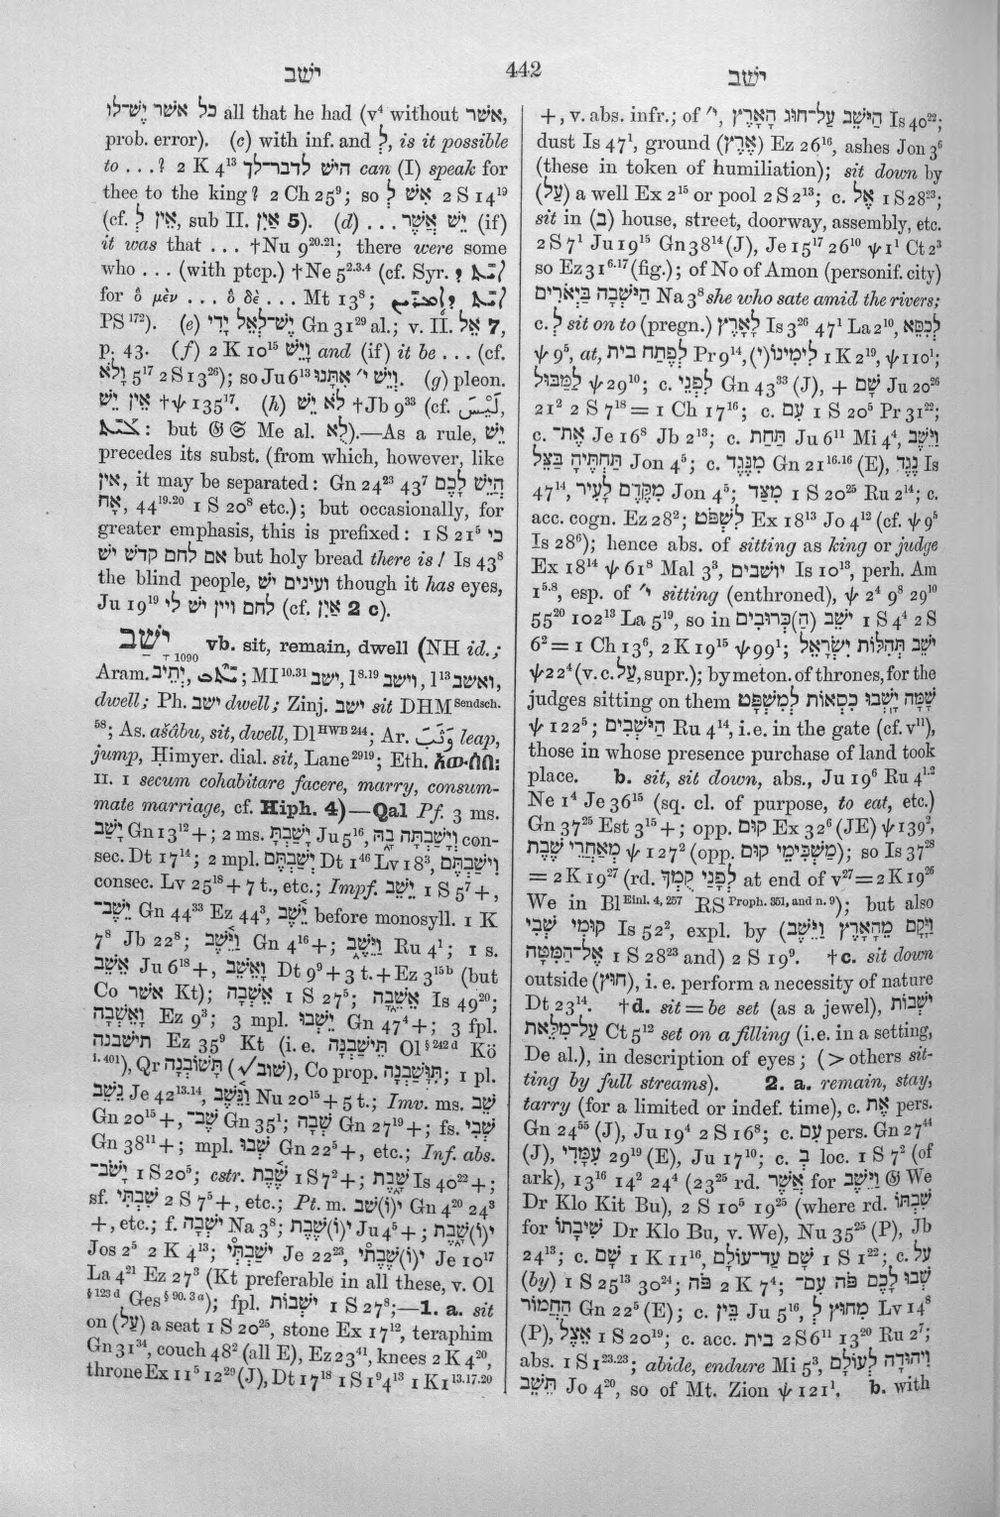 ישׁב
442
ישׁב
כל אשׁר יֶשׁ־לו all that he had (v⁴ without אשׁר,
prob. error). (c) with inf. and לְ, is it possible
to . . .? 2 K 4¹³ הישׁ לדבר־לך can (I) speak for
thee to the king? 2 Ch 25⁹; so אִשׁ לְ 2 S 14¹⁹
(cf. אֵין לְ, sub II. אַיִן 5). (d) . . . יֵשׁ אֲשֶׁר (if)
it was that . . . †Nu 9²⁰·²¹; there were some
who . . . (with ptcp.) †Ne 5²·³·⁴ (cf. Syr.
for ὁ μὲν . . . ὁ δὲ . . . Mt 13⁸;
PS¹⁷²). (e) יֶשׁ־לְאֵל יָדִי Gn 31²⁹ al.; v. II. אֵל 7,
p. 43. (f) 2 K 10¹⁵ וָיֵשׁ and (if) it be . . . (cf.
וְלֹא 5¹⁷ 2 S 13²⁶); so Ju 6¹³ וְיֵשׁ י׳ אִתָּנוּ. (g) pleon.
אֵין יֵשׁ †ψ 135¹⁷. (h) לֹא יֵשׁ †Jb 9³³ (cf. لَيْسَ,
: but 𝔊 𝔖 Me al. לֻא).—As a rule, יֵשׁ
precedes its subst. (from which, however, like
אין, it may be separated: Gn 24²³ 43⁷ הֲיֵשׁ לָכֶם
אָח, 44¹⁹·²⁰ 1 S 20⁸ etc.); but occasionally, for
greater emphasis, this is prefixed: 1 S 21⁵ כי
אם לחם קדשׁ ישׁ but holy bread there is! Is 43⁸
the blind people, ועינים ישׁ though it has eyes,
Ju 19¹⁹ לחם ויין ישׁ לי (cf. אַיִן 2 c).
יָשַׁב †1090 vb. sit, remain, dwell (NH id.;
Aram. יְתֵיב, ; MI¹⁰·³¹ ישב, ¹⁸·¹⁹ וישב, ¹¹³ ואשב,
dwell; Ph. ישב dwell; Zinj. ישב sit DHM Sendsch.
⁵⁸; As. ašâbu, sit, dwell, Dl HWB 244; Ar. وَثَبَ leap,
jump, Ḥimyer. dial. sit, Lane²⁹¹⁹; Eth. አውሰበ፡
II. 1 secum cohabitare facere, marry, consum-
mate marriage, cf. Hiph. 4)—Qal Pf. 3 ms.
יָשַׁב Gn 13¹²+; 2 ms. יָשַׁבְתָּ Ju 5¹⁶, וְיָשַׁבְתָּה בָהּ con-
sec. Dt 17¹⁴; 2 mpl. יְשַׁבְתֶּם Dt 1⁴⁶ Lv 18³, וִישַׁבְתֶּם
consec. Lv 25¹⁸ + 7 t., etc.; Impf. יֵשֵׁב 1 S 5⁷+,
יֵשֶׁב־ Gn 44³³ Ez 44³, יֵשֵׁב before monosyll. 1 K
7⁸ Jb 22⁸; וַיֵּשֶׁב Gn 4¹⁶+; וַיֵּשַׁב Ru 4¹; 1 s.
אֵשֵׁב Ju 6¹⁸+, וָאֵשֵׁב Dt 9⁹ + 3 t. + Ez 3¹⁵ᵇ (but
Co אשׁר Kt); אֵשְׁבָה 1 S 27⁵; אֵשֵׁבָה Is 49²⁰;
וָאֵשְׁבָה Ez 9³; 3 mpl. יֵשְׁבוּ Gn 47⁴+; 3 fpl.
תישׁבנה Ez 35⁹ Kt (i.e. תֵּישַׁבְנָה Ol §242d Kö
i. 401), Qr תָּשׁוֹבְנָה (√שׁוב), Co prop. תִּוָּשַׁבְנָה; 1 pl.
נֵשֵׁב Je 42¹³·¹⁴, וַנֵּשֶׁב Nu 20¹⁵ + 5 t.; Imv. ms. שֵׁב
Gn 20¹⁵+, שֶׁב־ Gn 35¹; שְׁבָה Gn 27¹⁹+; fs. שְׁבִי
Gn 38¹¹+; mpl. שְׁבוּ Gn 22⁵+, etc.; Inf. abs.
יָשֹׁב־ 1 S 20⁵; cstr. שֶׁבֶת 1 S 7²+; שָׁבֶת Is 40²²+;
sf. שִׁבְתִּי 2 S 7⁵+, etc.; Pt. m. י(וֹ)שֵׁב Gn 4²⁰ 24³
+, etc.; f. יֹשְׁבָה Na 3⁸; י(וֹ)שֶׁבֶת Ju 4⁵+; י(וֹ)שָׁבֶת
Jos 2⁵ 2 K 4¹³; יֹשַׁבְתְּי Je 22²³, י(וֹ)שֶׁבֶתי Je 10¹⁷
La 4²¹ Ez 27³ (Kt preferable in all these, v. Ol
§123d Ges §90.3a); fpl. יֹשְׁבוֹת 1 S 27⁸;—1. a. sit
on (עַל) a seat 1 S 20²⁵, stone Ex 17¹², teraphim
Gn 31³⁴, couch 48² (all E), Ez 23⁴¹, knees 2 K 4²⁰,
throne Ex 11⁵ 12²⁹ (J), Dt 17¹⁸ 1 S 1⁹ 4¹³ 1 K 1¹³·¹⁷·²⁰
+, v. abs. infr.; of י׳, הַיּשֵׁב עַל־חוּג הָאָרֶץ Is 40²²;
dust Is 47¹, ground (אֶרֶץ) Ez 26¹⁶, ashes Jon 3⁶
(these in token of humiliation); sit down by
(עַל) a well Ex 2¹⁵ or pool 2 S 2¹³; c. אֶל 1 S 28²³;
sit in (בְּ) house, street, doorway, assembly, etc.
2 S 7¹ Ju 19¹⁵ Gn 38¹⁴ (J), Je 15¹⁷ 26¹⁰ ψ 1¹ Ct 2³
so Ez 31⁶·¹⁷ (fig.); of No of Amon (personif. city)
הַיּשְׁבָה בַּיְאֹרִים Na 3⁸ she who sate amid the rivers;
c. לְ sit on to (pregn.) לָאָרֶץ Is 3²⁶ 47¹ La 2¹⁰, לְכִסֵּא
ψ 9⁵, at, לְפֶתַח בית Pr 9¹⁴, לִימִינוֹ(י) 1 K 2¹⁹, ψ 110¹;
לַמַּבּוּל ψ 29¹⁰; c. לִפְנֵי Gn 43³³ (J), + שָׁם Ju 20²⁶
21² 2 S 7¹⁸ = 1 Ch 17¹⁶; c. עִם 1 S 20⁵ Pr 31²³;
c. אֶת־ Je 16⁸ Jb 2¹³; c. תַּחַת Ju 6¹¹ Mi 4⁴, וַיֵּשֶׁב
תַּחְתֶּיהָ בַּצֵּל Jon 4⁵; c. מִנֶּגֶד Gn 21¹⁶·¹⁶ (E), נֶגֶד Is
47¹⁴, מִקֶּדֶם לָעִיר Jon 4⁵; מִצַּד 1 S 20²⁵ Ru 2¹⁴; c.
acc. cogn. Ez 28²; לִשְׁפֹּט Ex 18¹³ Jo 4¹² (cf. ψ 9⁵
Is 28⁶); hence abs. of sitting as king or judge
Ex 18¹⁴ ψ 61⁸ Mal 3³, יושׁבים Is 10¹³, perh. Am
1⁵·⁸, esp. of י׳ sitting (enthroned), ψ 2⁴ 9⁸ 29¹⁰
55²⁰ 102¹³ La 5¹⁹, so in ישֵׁב (הַ)כְּרוּבִים 1 S 4⁴ 2 S
6² = 1 Ch 13⁶, 2 K 19¹⁵ ψ 99¹; ישֵׁב תְּהִלּוֹת יִשְׂרָאֵל
ψ 22⁴ (v. c. עַל, supr.); by meton. of thrones, for the
judges sitting on them שָׁמָּה יָשְׁבוּ כִסְאוֹת לְמִשְׁפָּט
ψ 122⁵; הַיּשְׁבִים Ru 4¹⁴, i.e. in the gate (cf. v¹¹),
those in whose presence purchase of land took
place. b. sit, sit down, abs., Ju 19⁶ Ru 4¹·²
Ne 1⁴ Je 36¹⁵ (sq. cl. of purpose, to eat, etc.)
Gn 37²⁵ Est 3¹⁵+; opp. קום Ex 32⁶ (JE) ψ 139²,
מְאַחֲרֵי שֶׁבֶת ψ 127² (opp. מַשְׁכִּימֵי קום); so Is 37²⁸
= 2 K 19²⁷ (rd. לְפָנַי קֻמְךָ at end of v²⁷ = 2 K 19²⁶
We in Bl Einl. 4, 257 RS Proph. 351, and n. 9); but also
קוּמִי שְׁבִי Is 52², expl. by (וַיָּקָם מֵהָאָרֶץ וַיֵּשֶׁב
אֶל־הַמִּטָּה 1 S 28²³ and) 2 S 19⁹. †c. sit down
outside (חוּץ), i. e. perform a necessity of nature
Dt 23¹⁴. †d. sit = be set (as a jewel), יֹשְׁבוֹת
עַל־מִלֵּאת Ct 5¹² set on a filling (i.e. in a setting,
De al.), in description of eyes; (> others sit-
ting by full streams). 2. a. remain, stay,
tarry (for a limited or indef. time), c. אֵת pers.
Gn 24⁵⁵ (J), Ju 19⁴ 2 S 16⁸; c. עִם pers. Gn 27⁴⁴
(J), עִמָּדִי 29¹⁹ (E), Ju 17¹⁰; c. בְּ loc. 1 S 7² (of
ark), 13¹⁶ 14² 24⁴ (23²⁵ rd. אֲשֶׁר for וַיֵּשֶׁב 𝔊 We
Dr Klo Kit Bu), 2 S 10⁵ 19²⁵ (where rd. שִׁבְתּוֹ
for שִׁיבָתוֹ Dr Klo Bu, v. We), Nu 35²⁵ (P), Jb
24¹³; c. שָׁם 1 K 11¹⁶, שָׁם עַד־עוֹלָם 1 S 1²²; c. עַל
(by) 1 S 25¹³ 30²⁴; פֹּה 2 K 7⁴; שְׁבוּ לָכֶם פֹּה עִם־
הַחֲמוֹר Gn 22⁵ (E); c. בֵּין Ju 5¹⁶, מִחוּץ לְ Lv 14⁸
(P), אֵצֶל 1 S 20¹⁹; c. acc. בית 2 S 6¹¹ 13²⁰ Ru 2⁷;
abs. 1 S 1²³·²³; abide, endure Mi 5³, וִיהוּדָה לְעוֹלָם
תֵּשֵׁב Jo 4²⁰, so of Mt. Zion ψ 121¹. b. with